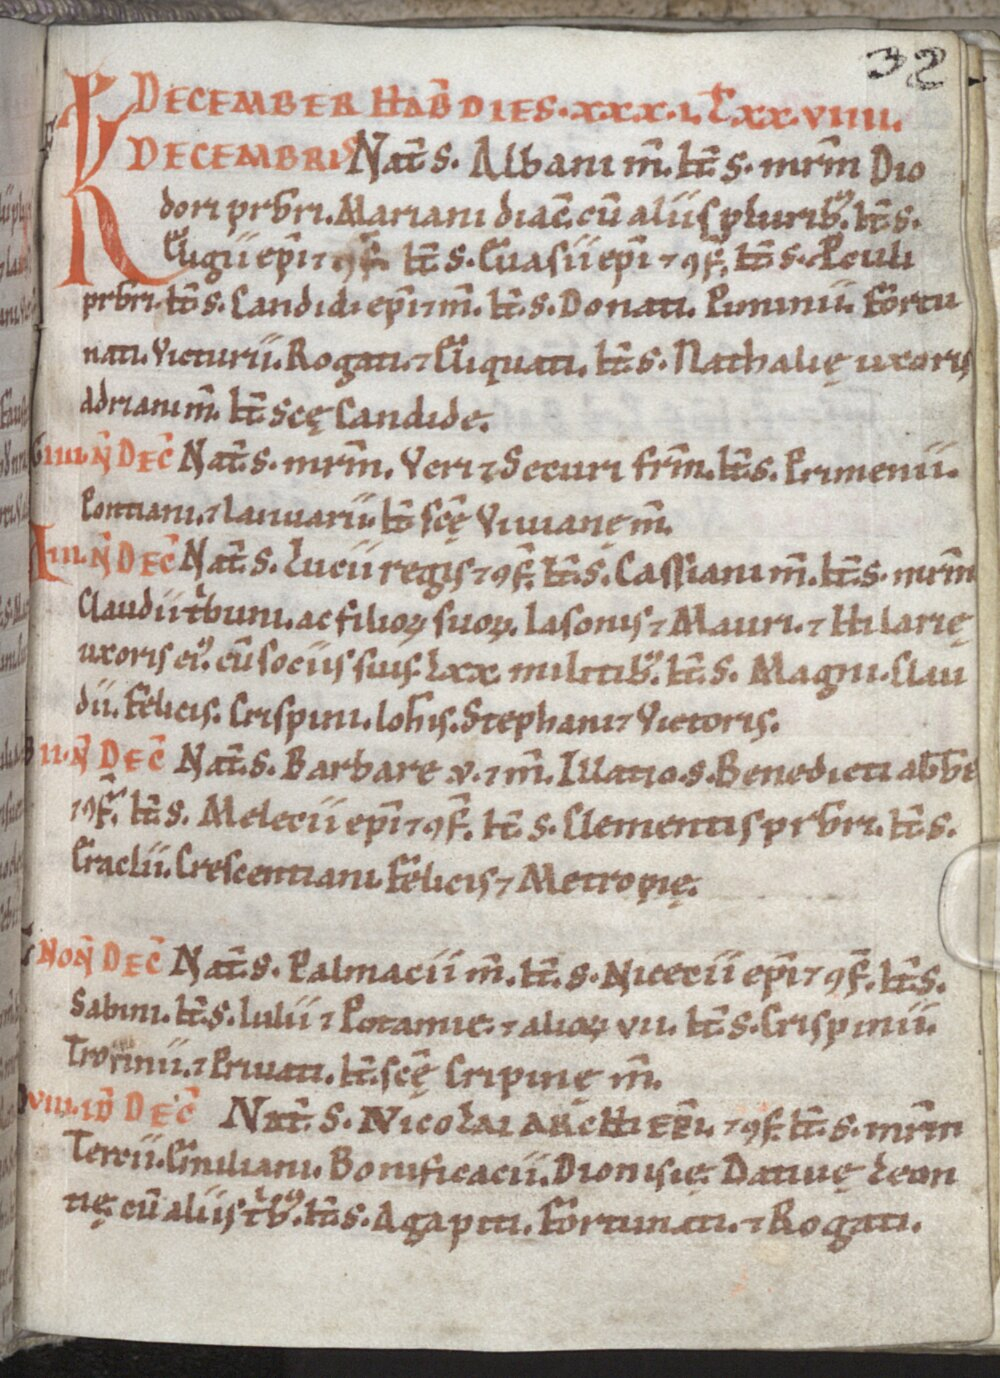 32
DECEMBER HAB̄ DIES. XXX.I. L̄. XX.VIIII.
KL DECEMBRIS Nat̄. s. Albani m̄. It̄. s. mr̄m Dio
dori pr̄bri. Mariani diac̄. cū aliis plurib᷒. It̄. s.
Eligii ep̄i ⁊ ꝯf̄. It̄. s. Euasii ep̄i ⁊ ꝯf̄. It̄. s. Pculi
pr̄bri. It̄. s. Candidi ep̄i ⁊ m̄. It̄. s. Donati. Piminii. Fortu
nati. Victurii. Rogati. ⁊ Eliquati. It̄. s. Nathalię uxoris
adriani m̄. It̄ scę Candide.
G IIII. N̄ DEC̄ Nat̄. s. mr̄m. Veri ⁊ Securi fr̄m. It̄. s. Primenii.
Pontiani. ⁊ Ianuarii. It̄ sc̄ę Viuianę m̄.
A III. N̄ DEC̄ Nat̄. s. Lucii regis ⁊ ꝯf̄. It̄. s. Cassiani m̄. It̄. s. mr̄m
Claudii t̄buni. ac filioꝝ suoꝝ. Iasonis ⁊ Mauri. ⁊ Hilarię
uxoris ei᷒. cū sociis suis. Lxx militib᷒. It̄. s. Magni. Clau
dii. Felicis. Crispini. Ioh̄is. Stephani ⁊ Victoris.
B II. N̄ DEC̄ Nat̄. s. Barbare v. ⁊ m̄. Illatio. s. Benedicti ab̄bi
⁊ ꝯf̄. It̄. s. Melecii ep̄i ⁊ ꝯf̄. It̄. s. Clementis pr̄bri. It̄. s.
Eraclii. Crescentiani. Felicis ⁊ Metropię.
NON̄ DEC̄ Nat̄. s. Palmacii m̄. It̄. s. Nicecii ep̄i ⁊ ꝯf̄. It̄. s.
Sabini. It̄. s. Iulii ⁊ Potamie. ⁊ alioꝝ VII. It̄. s. Crispinii.
⁊ Priuati. It̄. sc̄ę Cripinę m̄.
D VIII. ID̄ DEC̄ Nat̄. s. NICOLAI ARCHIEP̄I. ⁊ ꝯf̄. It̄. s. mr̄m
Tercii. Emiliani. Bonifacii. Dionisię. Datiuę Leon
tię. cū aliis t̄b᷒. It̄. s. Agapiti. Fortunati. ⁊ Rogati.